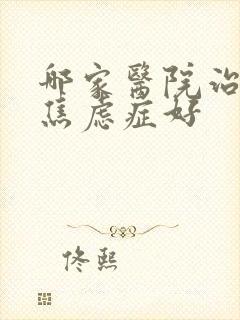 哪家醫院治
焦虑症好
佟熙